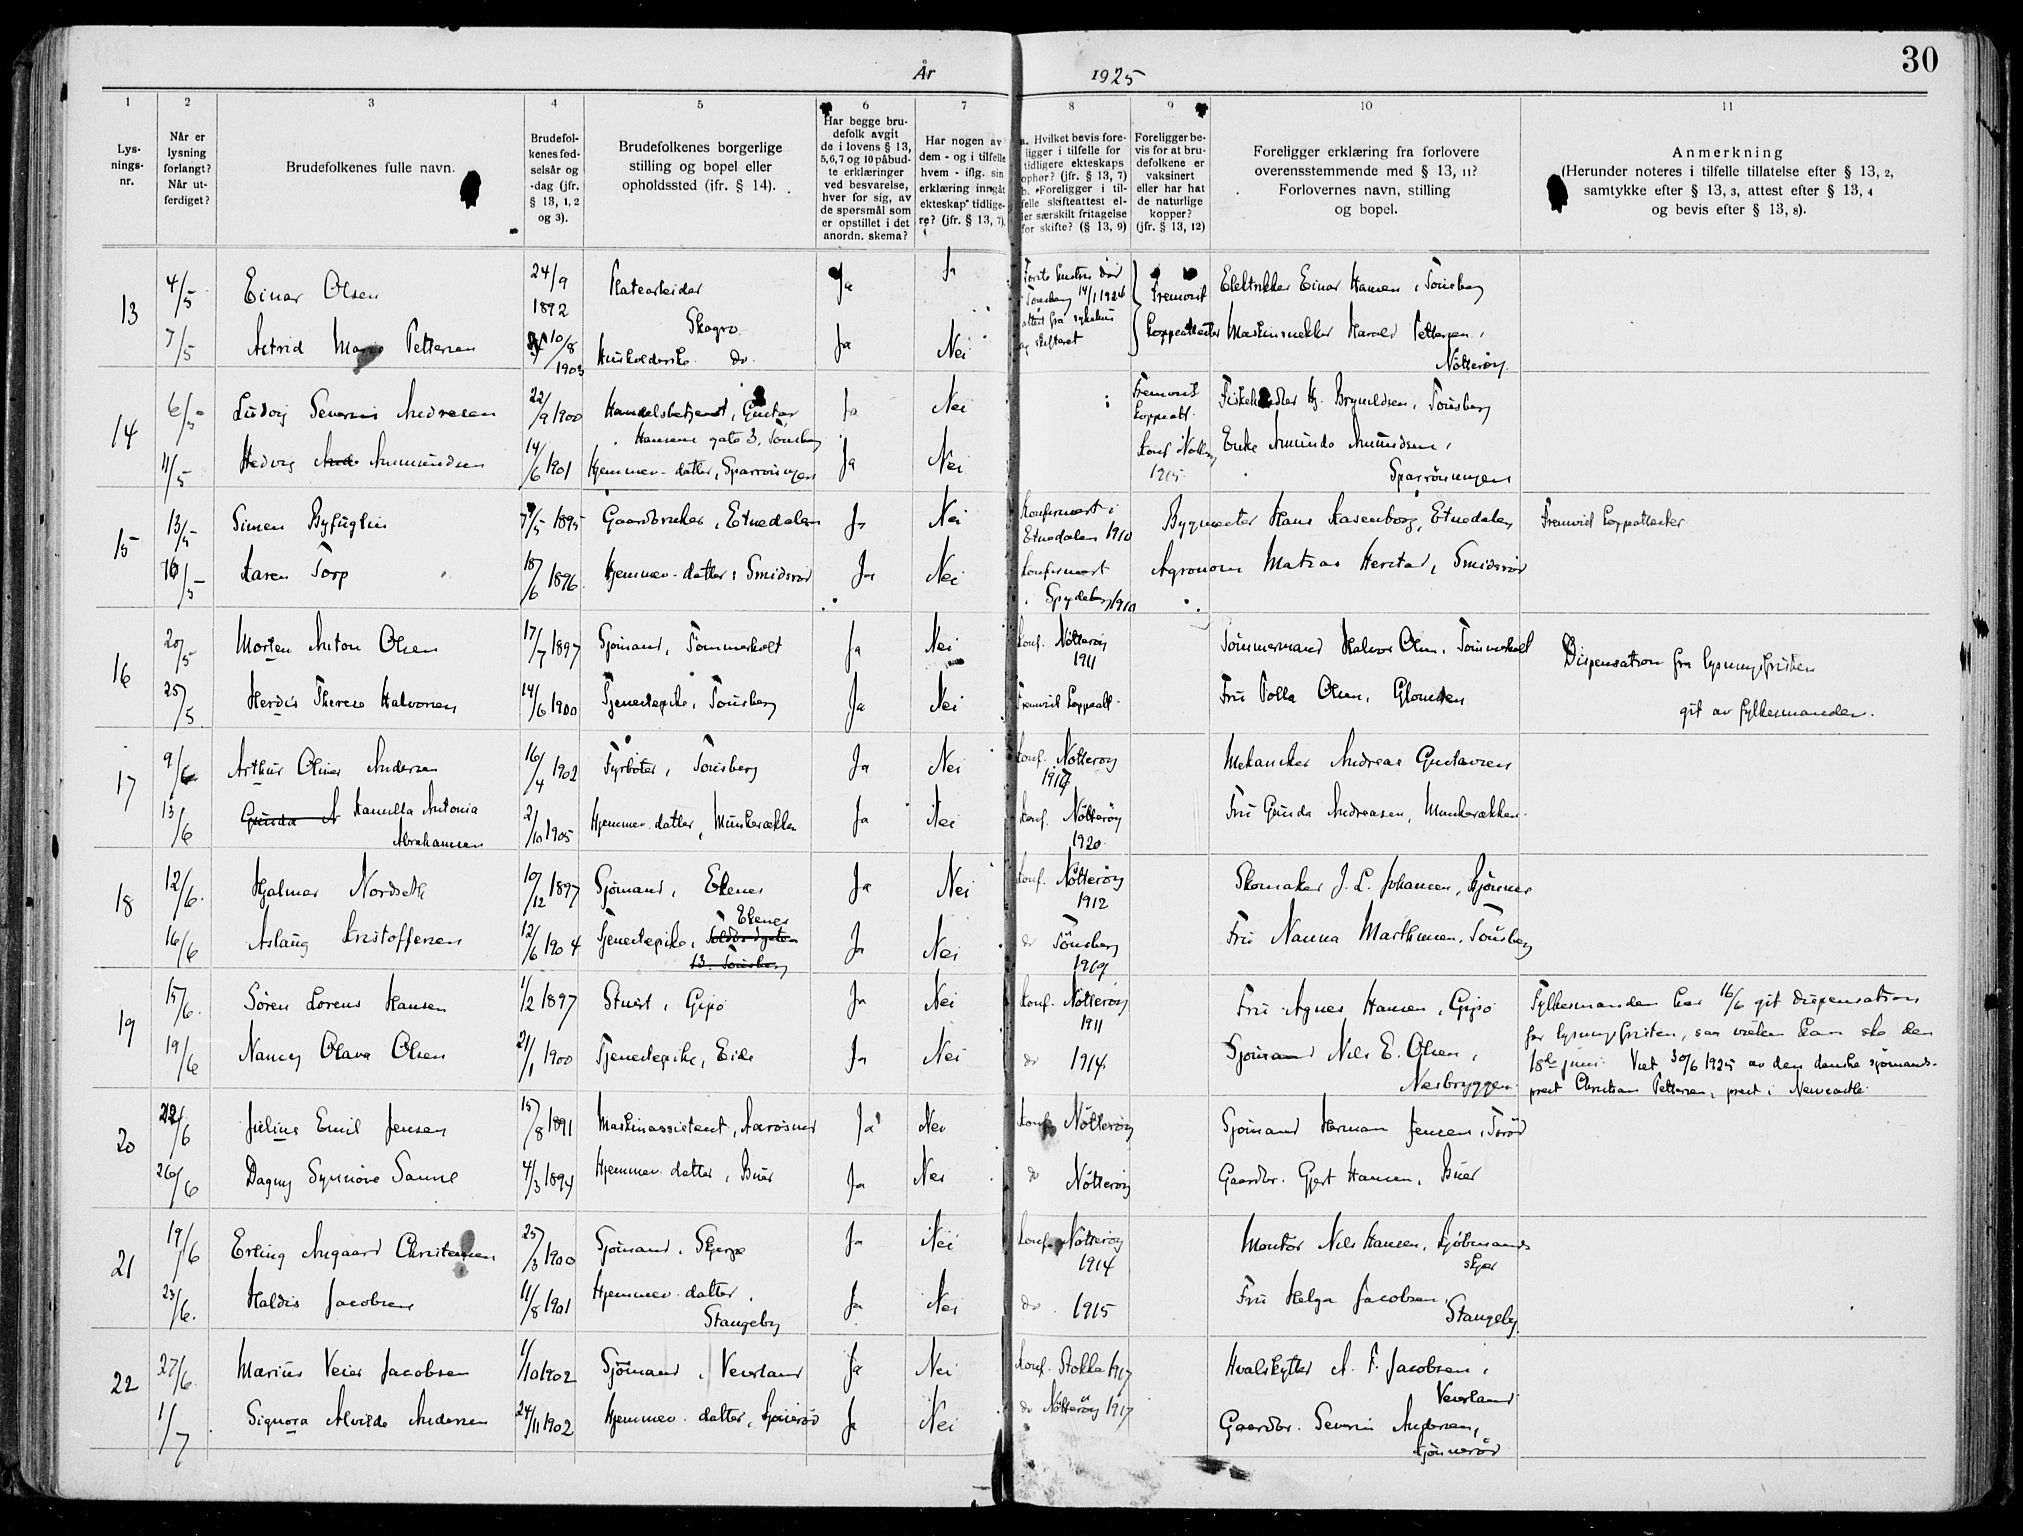 30
År 1925
1 2 3 4 5 6 7 8 9 10 11
Lys-
nings-
nr.
Når er
lysning
forlangt?
Når ut-
ferdiget?
Brudefolkenes fulle navn.
Brudefol-
kenes fød-
selsår og
-dag (jfr.
§ 13, 1, 2
og 3).
Brudefolkenes borgerlige
stilling og bopel eller
opholdssted (jfr. § 14).
Har begge bru-
defolk avgit
de i lovens § 13,
5,6,7 og 10 påbud-
te erklæringer
ved besvarelse,
hver for sig, av
de spørsmål som
er opstillet i det
anordn. skema?
Har nogen av
dem - og i tilfelle
hvem - iflg. sin
erklæring inngåt
ekteskap tidlige-
re? (jfr. § 13, 7).
a. Hvilket bevis fore-
ligger i tilfelle for
tidligere ekteskaps
ophør? (jfr. § 13, 7)
b. Foreligger i til-
felle skifteattest el-
ler særskilt fritagelse
for skifte? (§ 13, 9)
Foreligger be-
vis for at bru-
defolkene er
vaksinert
eller har hat
de naturlige
kopper?
(jfr. § 13, 12)
Foreligger erklæring fra forlovere
overensstemmende med § 13, 11?
Forlovernes navn, stilling
og bopel.
Anmerkning
(Herunder noteres i tilfelle tillatelse efter § 13, 2,
samtykke efter § 13, 3, attest efter § 13, 4
og bevis efter § 13, 8).
13 4/5 Einar Olsen 24/9 1892 Platearbeider Skagro Ja Ja
14/1 1924 Fremvist Elektrikker Einar Hansen, Tönsberg
7/5 Astrid Marie Pettersen 10/8 1903 Husholderske do. Ja Nei
Koppeattester Maskinsnekker Harald Pettersen, Nötteröy
14 6/5 Ludvig Severin Andresen 22/9 1900 Handelsbetjent, Gustav
Hansens gate 3, Tönsberg Ja Nei
Fremvist Koppeatt. Fiskehandler Hj. Brynildsen, Tönsberg
11/5 Hedvig Anmundsen 14/6 1901 Hjemmev. datter, Ja Nei
Konf. Nötteröy 1915 Enke
15 13/5 Simen Byfuglin 7/5 1895 Gaardbruker, Etnedalen Ja Nei
Konfirmert i Etnedalen 1910 Bygmester Hans Etnedalen Fremvist koppeattester
16/5 Karen Torp 18/6 1896 Hjemmev. datter, Smidsröd Ja Nei
konfirmert i Spydeberg 1910 Agronom Matias Smidsröd
16 20/5 Morten Anton Olsen 17/7 1897 Sjömand, Tömmerholt Ja Nei
konf. Nötteröy 1911 Tömmermand Halvor Olsen, Tömmerholt Dispensation fra lysningsfristen
25/5 Herdis Therese Halvorsen 14/6 1900 Tjenestepike, Tönsberg Ja Nei
Fremvist koppeatt. Fru Olsen, git av fylkesmanden.
17 9/6 Arthur Oliver Andersen 16/4 1902 Fyrböter, Tönsberg Ja Nei
konf. Nötteröy Mekaniker Andreas Gustavsen
13/6 Gunda A Kamilla Antonia
Abrahamsen 2/10 1905 Hjemmev. datter, Munkerækken Ja Nei
konf. Nötteröy 1920 Fru Gunda Andreasen, Munkerækken.
18 12/6 Hjalmar Nordseth 10/12 1897 Sjömand, Ekenes Ja Nei
konf. Nötteröy 1912 Skomaker J. L. Johansen,
16/6 Aslaug Kristoffersen 12/6 1904 Tjenestepike, Ekenes
13. Tönsberg Ja Nei
do Tönsberg 1919 Fru Nanna Marthinsen, Tönsberg
19 15/6 Sören Lorens Hansen 1/2 1897 Stuert, Gipö Ja Nei
konf. Nötteröy 1911 Fru Agnes Hansen, Gipö Fylkesmanden har 16/6 git dispensation
for lysningsfristen, saa vielsen kan ske den
19/6 Nancy Olava Olsen 21/1 1900 Tjenestepike, Eide Ja Nei
do 1914 Sjömand Nils E. Olsen, Nesbryggen 18de juni. Viet 30/6 1925 av den danske sjömands-
prest Christian Pettersen, prest i Newcastle
20 22/6 Julius Emil Jensen 15/8 1891 Maskinassistent, Aarösund Ja Nei
konf. Nötteröy Sjömand Herman Jensen,
26/6 Dagny Synnöve Sanne 4/3 1894 Hjemmev. datter, Buer Ja Nei
do Nötteröy Gaardbr. Gjert Hansen, Buer
21 19/6 Erling Augaard Christensen 25/3 1900 Sjömand, Skjerpe Ja Nei
konf. Nötteröy 1914 Montör Nils Hansen, Kjöbmands
skjer
23/6. Haldis Jacobsen 11/8 1901 Hjemmev. datter, Stangeby Ja Nei
do. 1915 Fru Helga Jacobsen, Stangeby.
22 27/6 Marius Veier Jacobsen 1/10 1902 Sjömand, Veierland Ja Nei
konf. Stokke 1917 Hvalskytter A. F. Jacobsen, Veierland
1/7 Signora Alvilde Andersen 24/11 1902 Hjemmev. datter, Ja Nei
do Nötteröy 1917 Gaardbr. Severin Andersen,